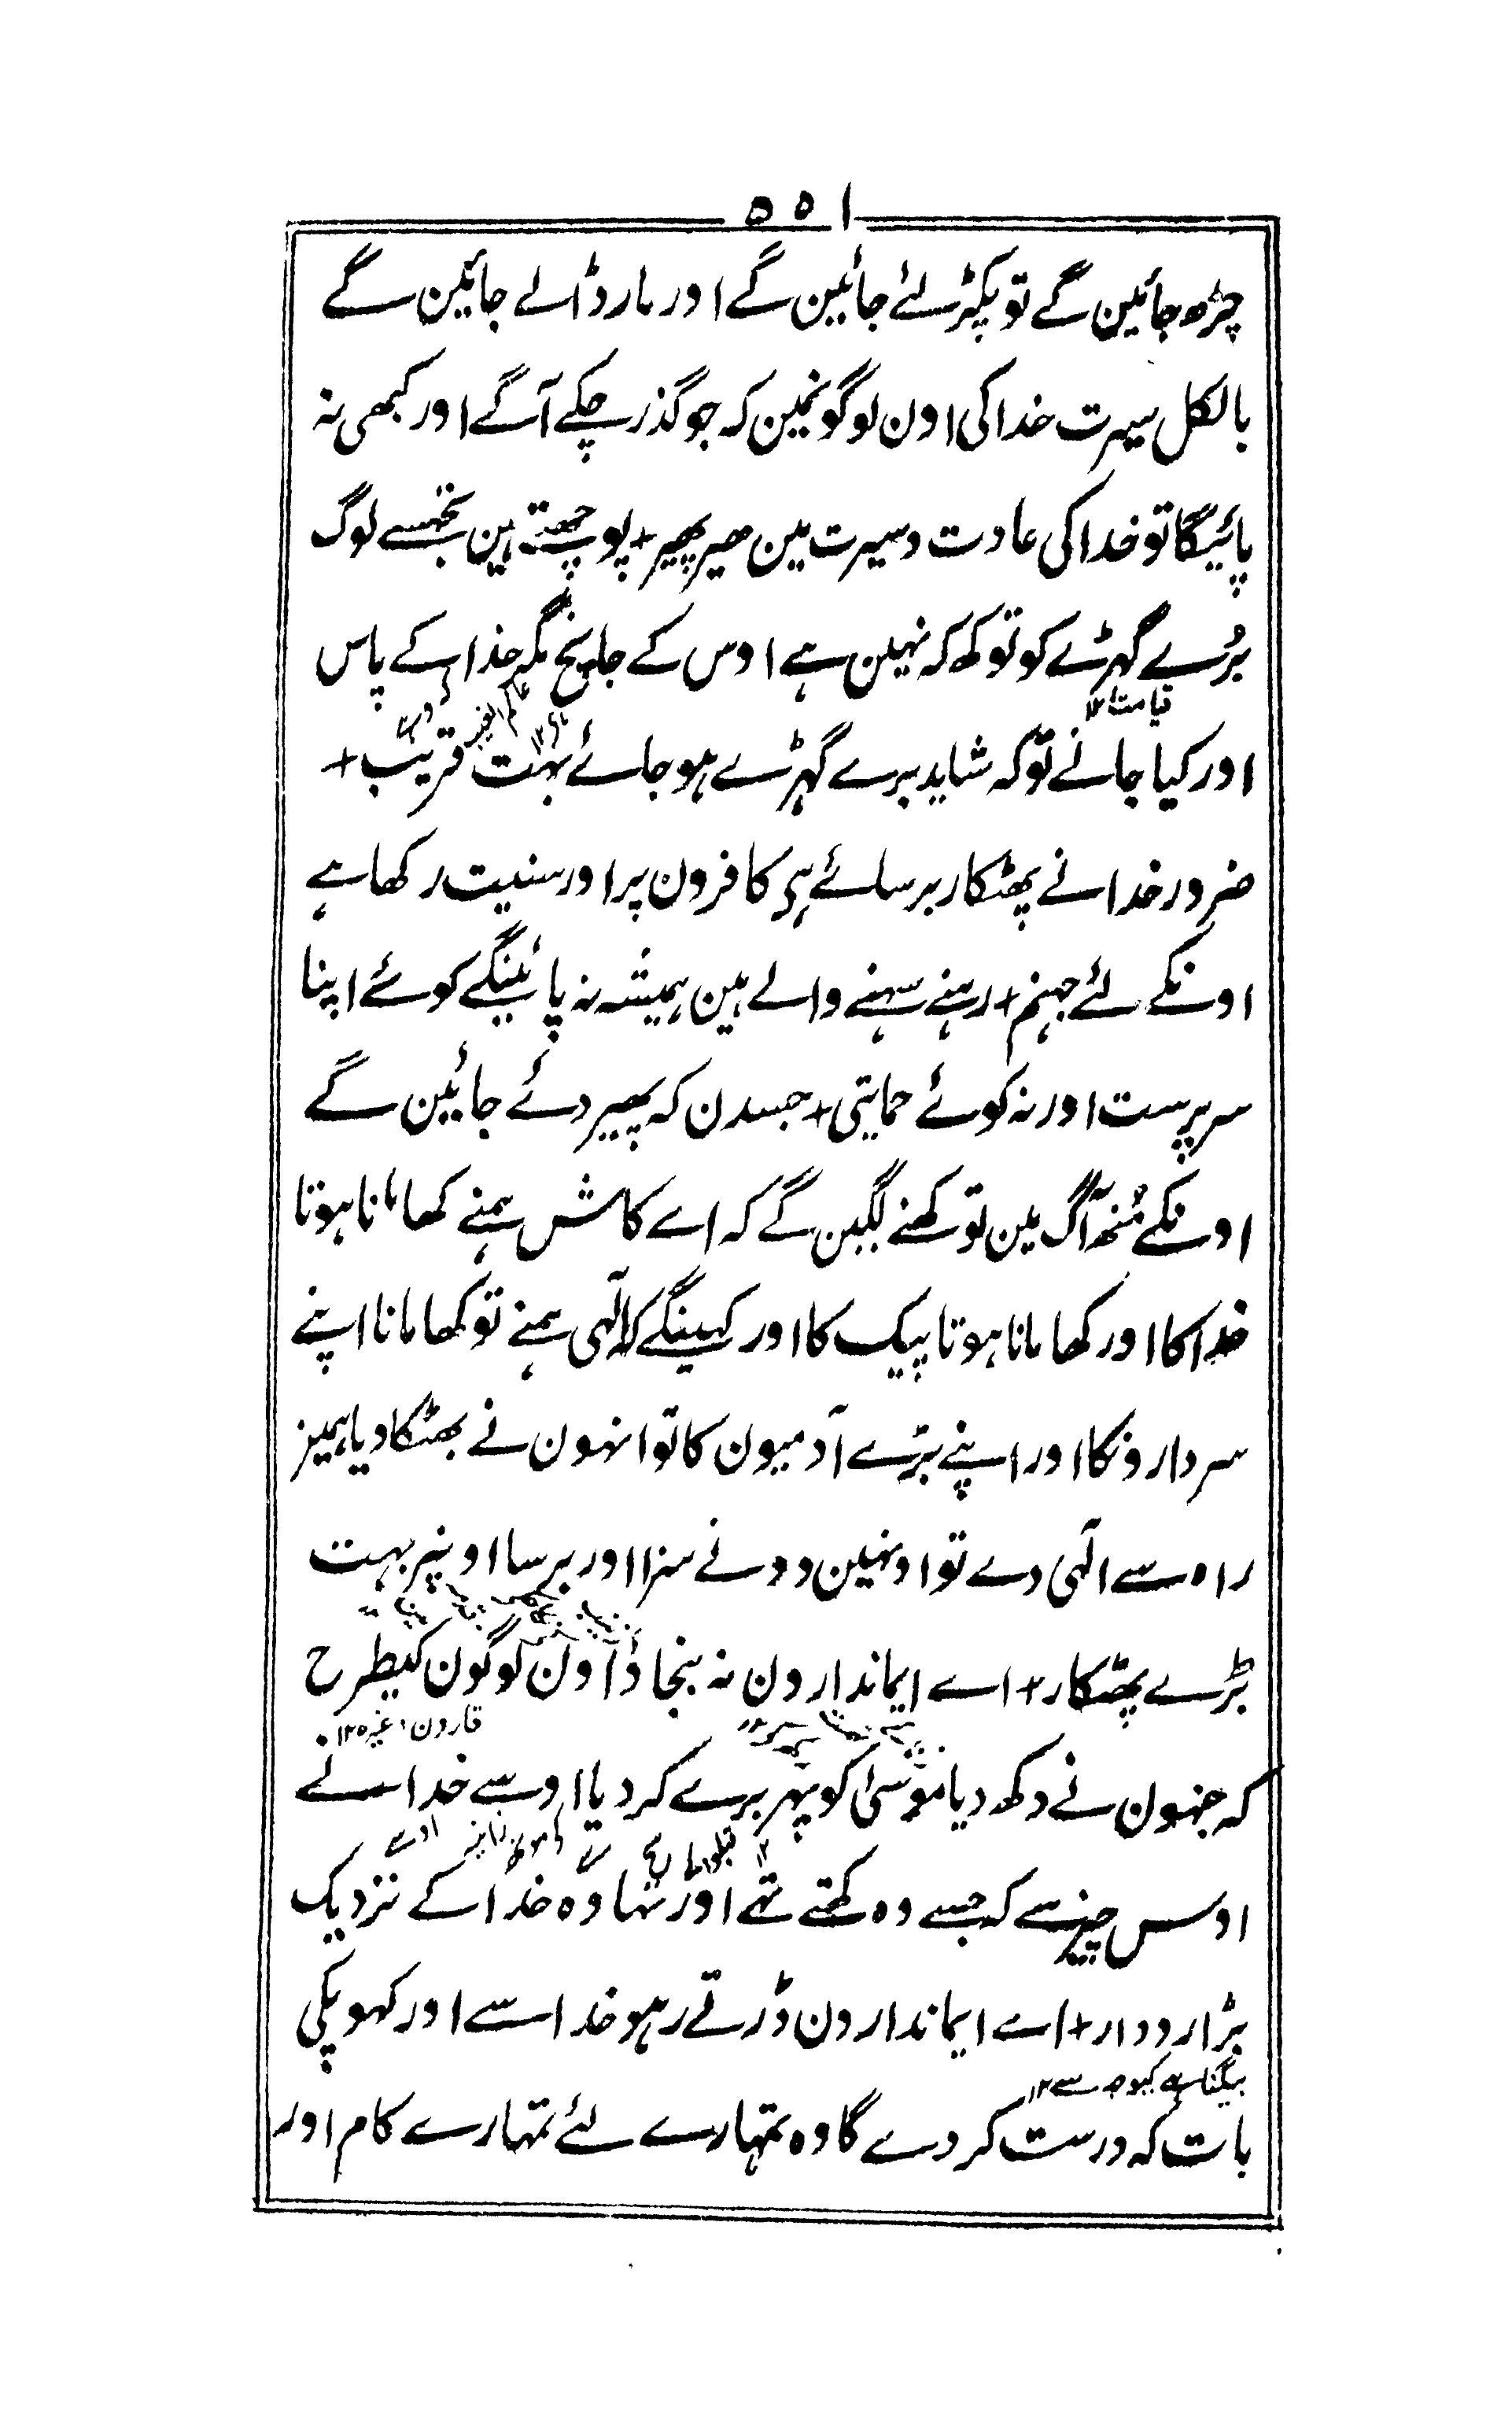 ۵۵۱
چڑھ جائین گے تو پکڑ لئے جائین گے اور مار ڈالے جائین گے
بالکل سیرت خدا کی اون لوگونمین کہ جو گذر چکے آگے اور کبھی نہ
پائیگا تو خدا کی عادت و سیرت مین ھیر پھیر + پوچھتے ہین تجھسے لوگ
بُرے گہڑے کو تو کھ کہ نہین ہے اوس کے جاننچ مگر خدا ہے کے پاس
قیامت ۱۲
اور کیا جانے تو کہ شاید برے گہڑے ہو جائے بہت قریب +
ضرور خدا نے پھٹکار برسائے ہی کافرون پر اور سنیت رکھا ہے
اونکے لئے جہنم + رہنے سہنے والے ہین ہمیشہ نہ پائینگے کوئے اپنا
سرپرست اور نہ کوئے حمایتی + جسدن کہ پھیر دئے جائین گے
اونکے مُنھ آگ مین تو کھنے لگین گے کہ اے کاش ہمنے کھا مانا ہوتا
خدا کا اور کھا مانا ہوتا پیک کا اور کہینگے کہ الٓہی ہمنے تو کھا مانا اپنے
سردارونکا اور اپنے بڑے آدمیون کا تو انہون نے بھٹکا دیا ہمیز
راہ سے الٓہی دے تو اونہین دونے سزا اور برسا اونپر بہت
بڑے پھٹکار + اے ایماندارون نہ بنجاؤ اون لوگون کیطرح
قارون وغیرہ ۱۲
کہ جنہون نے دکھ دیا موسٰی کو پھر برے کر دیا اوسے خدا نے
اوس چیز سے کہ جسے وہ کھتے تھے اور تہا وہ خدا کے نزدیک
بڑا رودار + اے ایماندارون ڈرتے رہو خدا سے اور کہو پکی
بات کہ درست کر دے گا وہ تمہارے لئے تمہارے کام اور